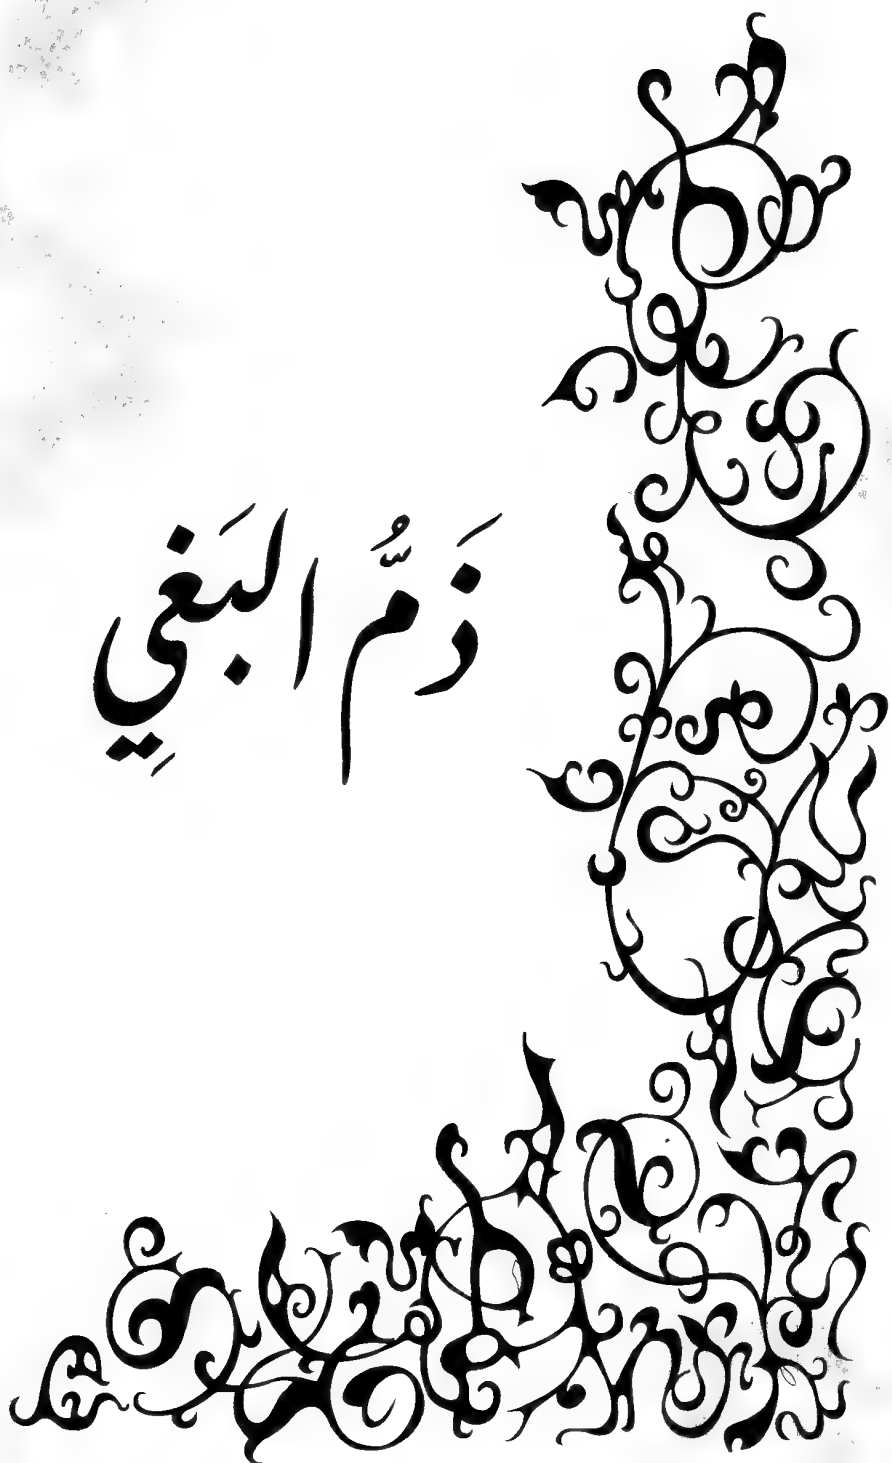 ذَمُّ البَغيِ